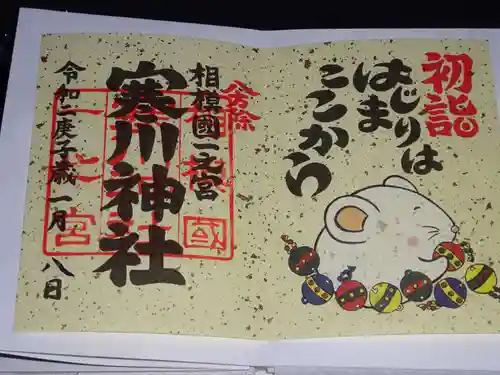 初詣
はじまりは
ここから
八方除
相模國一之宮
寒川神社
令和二庚子歳一月八日